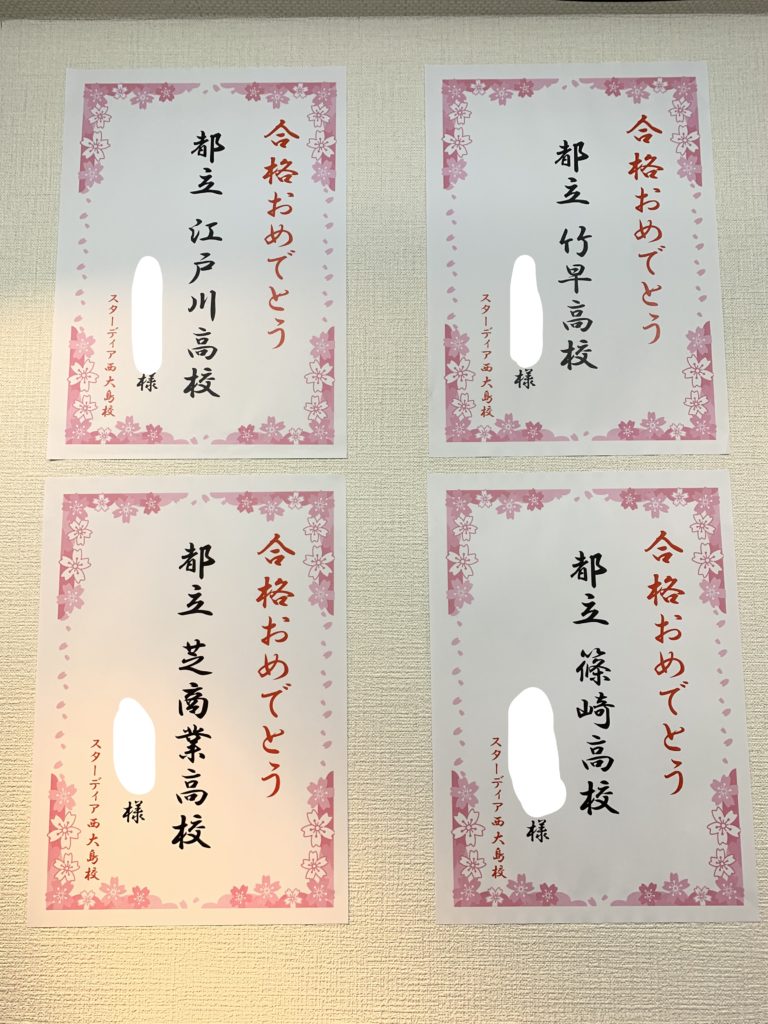 合格おめでとう
都立 江戸川高校
様
スターディア西大島校
合格おめでとう
都立 竹早高校
様
スターディア西大島校
合格おめでとう
都立 芝商業高校
様
スターディア西大島校
合格おめでとう
都立 篠崎高校
様
スターディア西大島校